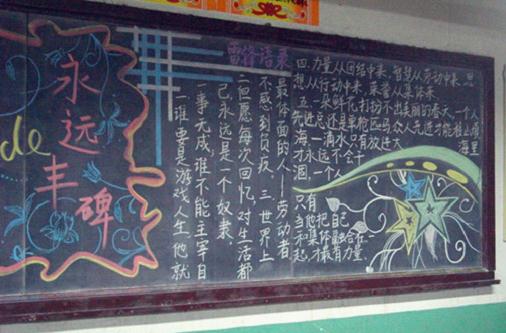 永远丰碑
de
雷锋语录
一谁要是游戏人生,他就
一事无成,谁不能主宰自
己永远是一个奴隶.
二但愿每次回忆,对生活都
不感到负疚.三世界上
最体面的人——劳动者
四.力量从团结中来,智慧从劳动中来,思
想从行动中来,荣誉从集体来
五.一朵鲜花打扮不出美丽的春天,一个人
先进总还是单枪匹马,众人先进才能移山填
海,一滴水只有放进大海里
才永远不会干
涸,一个人
只有
当他把自己
和集体融合在一
起,才最有力量.